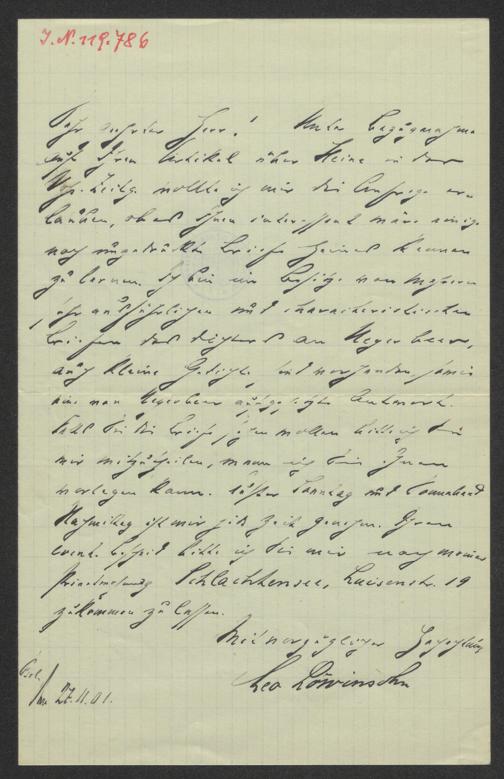 J.N. 119.786
Sehr geehrter Herr! Unter Bezugnahme
auf Ihren Artikel über Heine in der
Voss. Zeitg. wollte ich mir die Anfrage er-
lauben, ob es Ihnen interessant wäre einige
noch ungedruckte Briefe Heines kennen
zu lernen. Ich bin im Besitze von mehreren
sehr ausführlichen und charakteristischen
Briefen des Dichters an Meyerbeer,
auch kleine Gedichte sind vorhanden sowie
eine von Meyerbeer aufgesetzte Antwort.
Falls Sie die Briefe sehen wollen bitte ich Sie
mir mitzuteilen, wann ich sie Ihnen
vorlegen kann. Außer Sonntag und Sonnabend
Nachmittag ist mir jede Zeit genehm. Ihren
event. Bescheid bitte ich Sie mir nach meiner
Privatwohnung Schlachtensee, Luisenstr. 19
zukommen zu lassen.
Mit vorzüglicher Hochachtung
Leo Löwinsohn
Berl.
den 27.11.01.